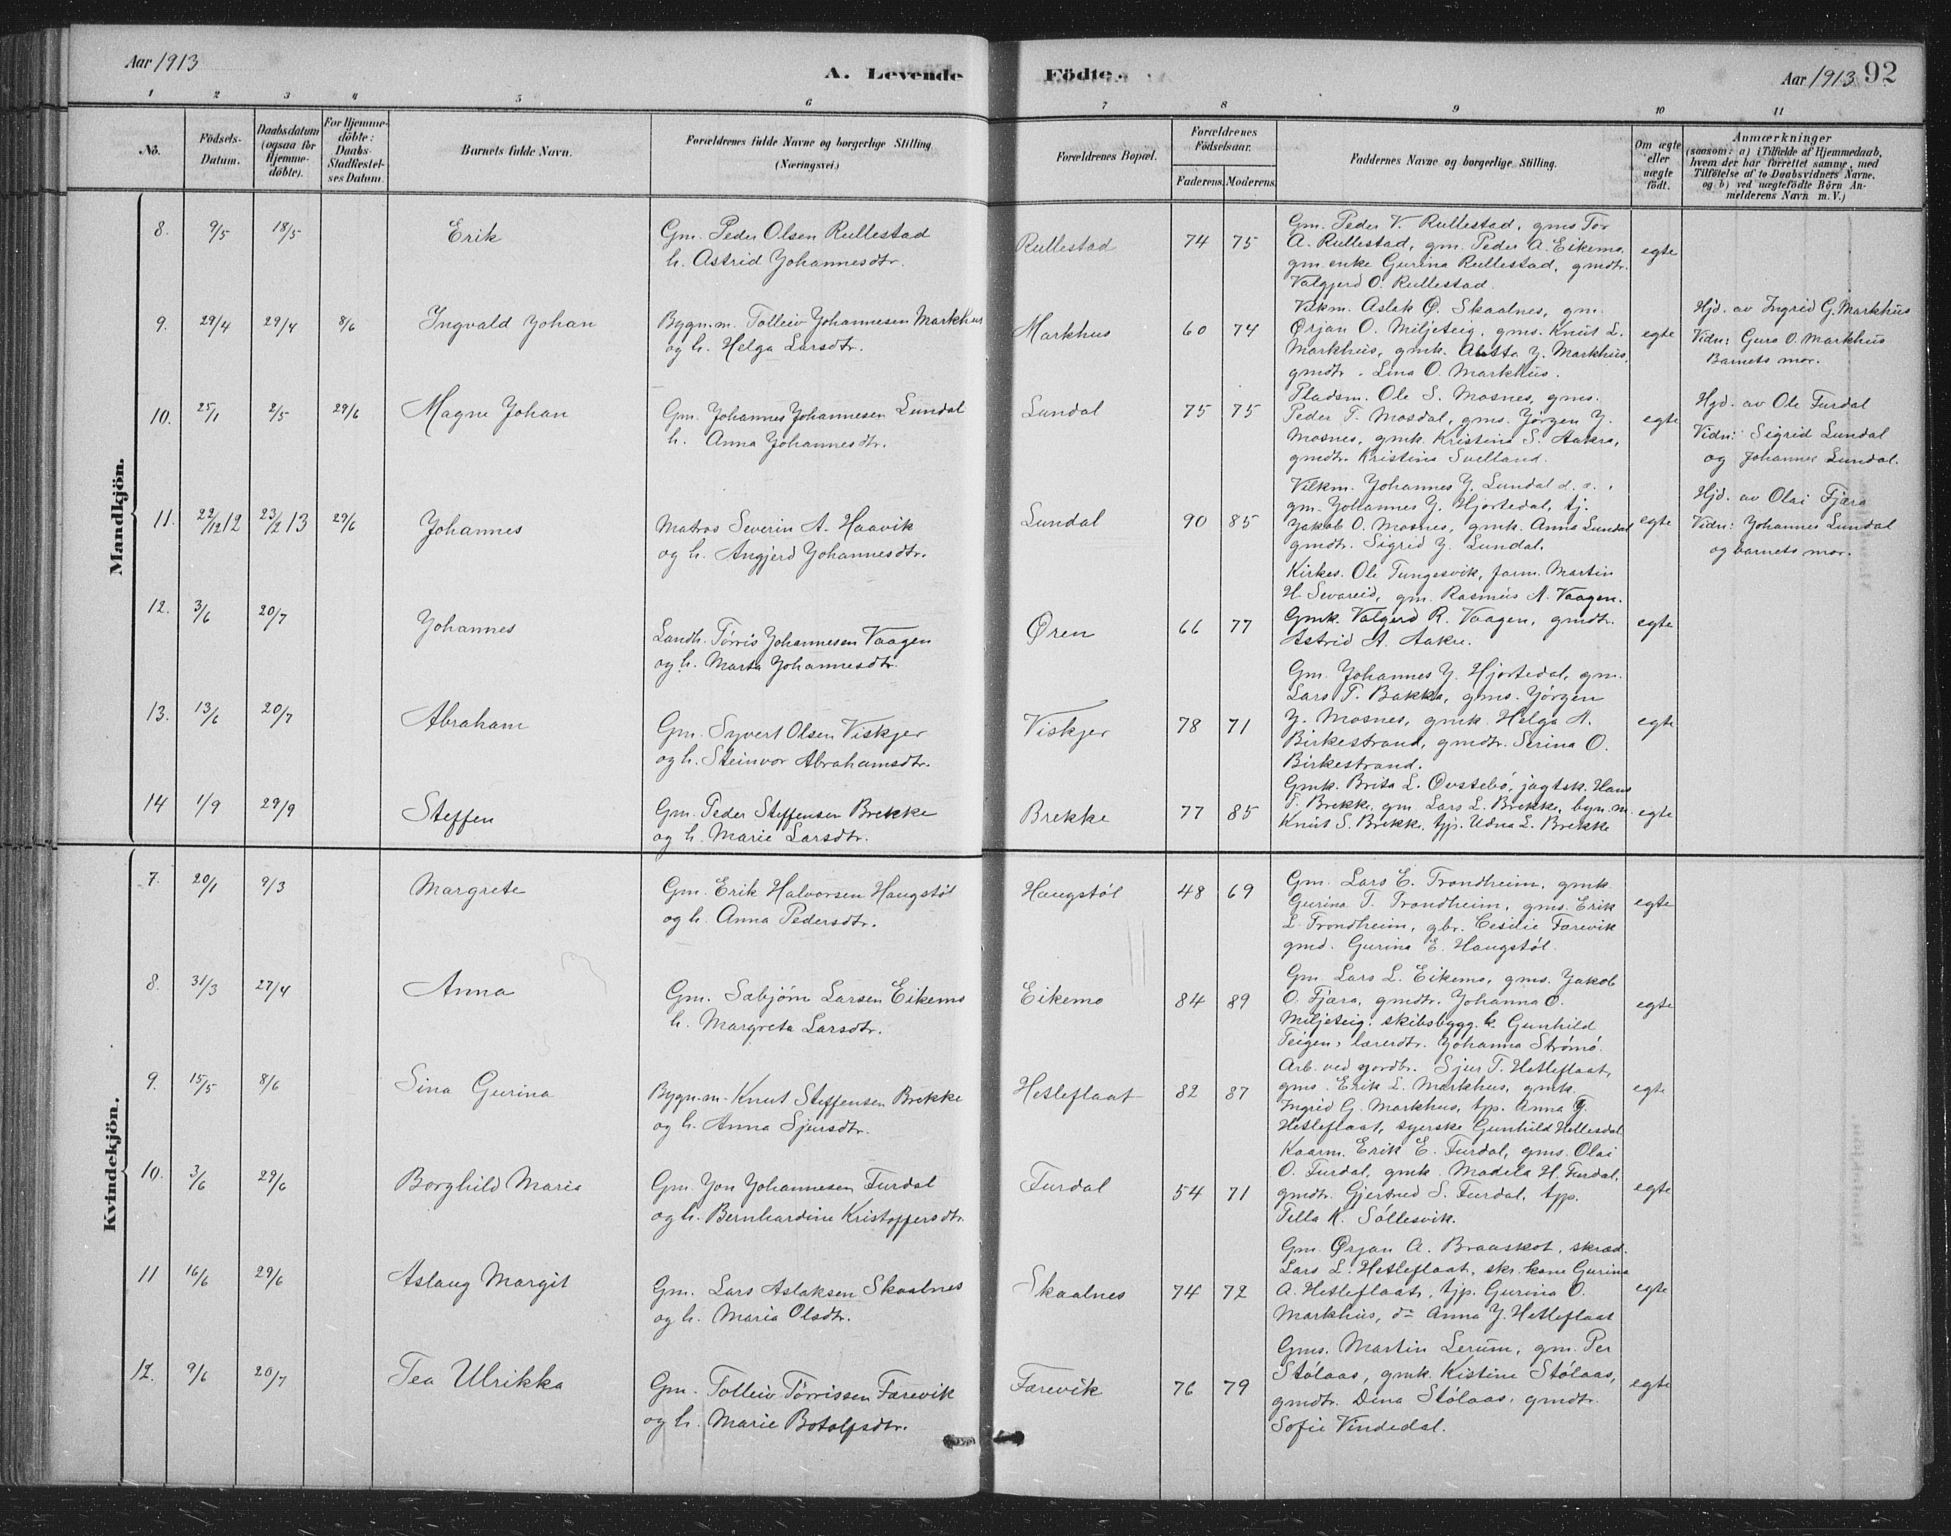 Aar 1913
A. Levende
Födte.
Aar 1913 92
1 2 3 4 5 6 7 8 9 10 11
No.
Födsels-
Datum.
Daabsdatum
(ogsaa for
Hjemme-
döbte).
For Hjemme-
döbte:
Daabs-
Stadfæstel-
ses Datum.
Barnets fulde Navn.
Forældrenes fulde Navne og borgerlige Stilling
(Næringsvei.)
Forældrenes Bopæl.
Forældrenes
Födselsaar.
Faderens. Moderens.
Faddernes Navne og borgerlige Stilling.
Om ægte
eller
uægte
født.
Anmærkninger
(saasom: a) i Tilfælde af Hjemmedaab,
hvem der har forrettet samme, med
Tilföielse af to Daabsvidners Navne,
og b) ved uægtefödte Börn An-
melderens Navn m. V.)
Mandkjön.
8. 9/5 18/5
Erik
Gm. Peder Olsen Rullestad
h. Astrid Johannesdtr.
Rullestad
74 75
Gm. Peder V. Rullestad, gms Tor
A. Rullestad, gm. Peder A. Eikemo,
gm. enke Gurina Rullestad, gmdtr.
Valgjerd O. Rullestad.
egte
9. 29/4 29/4 8/6
Ingvald Johan
Bygn.m. Tolleiv Johannesen Markhus
og h. Helga Larsdtr.
Markhus
60 74
Vilkm. Aslak Ø. Skaalnes, gm.
Ørjan O. Miljeteig, gms. Knut L.
Markhus, gmk. J. Markhus,
gmdtr. Lina O. Markhus.
egte
Hjd. av Ingrid G. Markhus
Vidn: Guro O. Markhus
Barnets mor.
10. 25/1 2/5 29/6
Magne Johan
Gm. Johannes Johannesen Lundal
h. Anna Johannesdtr.
Lundal
75 75
Pladsm. Ole S. Mosnes, gms.
Peder T. Mosdal, gms. Jörgen J.
Mosnes, gmk. Kristina S. Aakra,
gmdtr. Kristina Svelland.
egte
Hjd. av Ole Furdal
Vidn: Sigrid Lundal
og Johannes Lundal.
11. 22/12 12 23/2 13 29/6
Johannes
Matros Severin A. Haavik
og h. Angjerd Johannesdtr.
Lundal
90 85
Vilkm. Johannes J. Lundal d. e.,
gm. Johannes J. Hjortedal, tj.
Jakob O. Mosnes, gmk. Anna Lundal
gmdtr. Sigrid J. Lundal.
egte
Hjd. av Olai Fjæra
Vidn: Johannes Lundal
og barnets mor.
12. 3/6 20/7
Johannes
Landh. Törris Johannesen Vaagen
og h. Marta Johannesdtr.
Øren
66 77
Kirkes. Ole Tungesvik, farm. Martin
H. Sevareid, gm. Rasmus A. Vaagen.
Gmk. Valgerd R. Vaagen, gmdtr.
Astrid A. Aakre.
egte
13. 13/6 20/7
Abraham
Gm. Syvert Olsen Viskjer
og h. Steinvor Abrahamsdtr.
Viskjer
78 71
Gm. Johannes J. Hjortedal, gm.
Lars T. Bakka, gms. Jörgen
J. Mosnes, gmk. Helga A.
Birkestrand, gmdtr. Serina O.
Birkestrand.
egte
14 1/9 29/9
Steffen
Gm. Peder Steffensen Brekke
og h. Marie Larsdtr.
Brekke
77 85
Gmk. Brita L. Øvstebö, jagtsk. Hans
P. Brekke, gm. Lars L. Brekke, bygn.m.
Knut S. Brekke, tjp. Udna L. Brekke
egte
Kvindekjön.
7. 20/1 9/3
Margrete
Gm. Erik Halvorsen Haugstöl
og h. Anna Pedersdtr.
Haugstöl
48 69
Gm. Lars E. Trondheim, gmk.
Gurina T. Trondheim, gms. Erik
L. Trondheim, gbr. Cesilie Farevik
gmd. Gurina E. Haugstöl.
egte
8. 31/3 27/4
Anna
Gm. Sæbjörn Larsen Eikemo
h. Margreta Larsdtr.
Eikemo
84 89
Gm. Lars L. Eikemo, gms. Jakob
O. Fjæra, gmdtr. Johanna O.
Miljeteig, skibsbygg. k. Gunhild
Teigen, lærerdtr. Johanna Strömö.
egte
9. 15/5 8/6
Sina Gurina
Bygn.m. Knut Steffensen Brekke
og h. Anna Sjursdtr.
Hetleflaat
82 87
Arb. ved jordbr. Sjur T. Hetleflaat,
gms. Erik L. Markhus, gmk.
Ingrid G. Markhus, tjp. Anna J.
Hetleflaat, syerske Gunhild Hellesdal
egte
10. 3/6 29/6
Borghild Maria
Gm. Jon Johannesen Furdal
og h. Bernhardine Kristoffersdtr.
Furdal
54 71
Kaarm. Erik E. Furdal, gms. Olai
O. Furdal, gmk. Madela H. Furdal,
gmdtr. Gjertrud S. Furdal, tjp.
Tella K. Söllesvik.
egte
11 16/6 29/6
Aslaug Margit
Gm. Lars Aslaksen Skaalnes
og h. Maria Olsdtr.
Skaalnes
74 72
Gm. Ørjan A. Braaskot, skræd.
Lars L. Hetleflaat, skr. kone Gurina
A. Hetleflaat, tjp. Gurina O.
Markhus, do Anna J. Hetleflaat
egte
12. 9/6 20/7
Tea Ulrikka
Gm. Tolleiv Törrissen Farevik
og h. Marie Botolfsdtr.
Farevik
76 79
Gms. Martin Lerum, gm. Per
Stölaas, gmk. Kistine Stölaas,
gmdtr. Dina Stölaas, gmdtr.
Sofie Vindedal.
egte